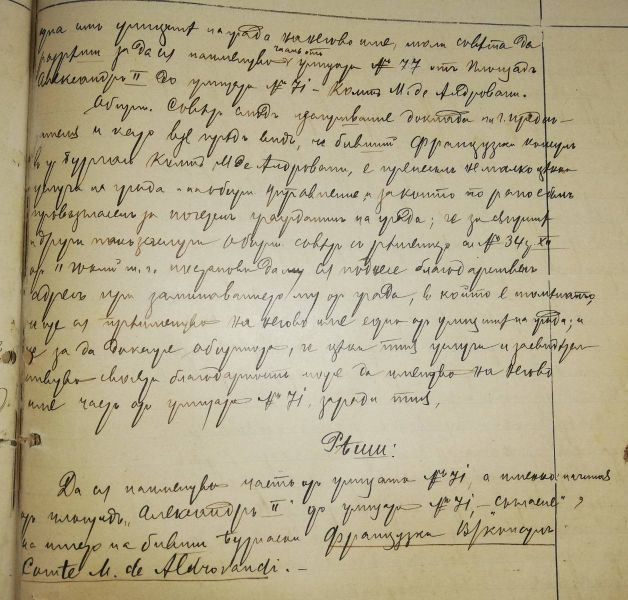 една отъ улиците на града на негово име, моли съвета да
разреши за да се наименува частъ отъ улица № 77 отъ Площадъ
Александръ II до улица № 71 – Комтъ М. де Алдровани.
Общин. Съветъ следъ изслушвание доклада на г. Предсе-
и като взе предъ видъ, че бившия Французки консулъ
въ гр. Бургасъ Комтъ М. де Алдровани, е принесълъ не малко ценни
услуги на града и на общин. управление, за които по рано е билъ
провъзгласенъ за почетенъ гражданинъ на града; че за същите
и други такива заслуги Общин. съветъ съ решението си № 34 XII
отъ 11 того постанови да му се поднесе благодарственъ
адресъ при заминаванието му отъ града, въ който е
и ще се преименува на негово име една отъ улиците на града; и
че за да докаже общината, че цени тия услуги и засвидетел-
ствува своята благодарность може да именува на негово
име часть отъ улица № 71, заради тия,
Реши:
Да се наименува часть отъ улицата № 71, а именно
отъ площадъ „Александръ II" до улица № 71, –
на името на бивши Бургаски Французки В/консулъ
Comte M. de Aldrovandi. –